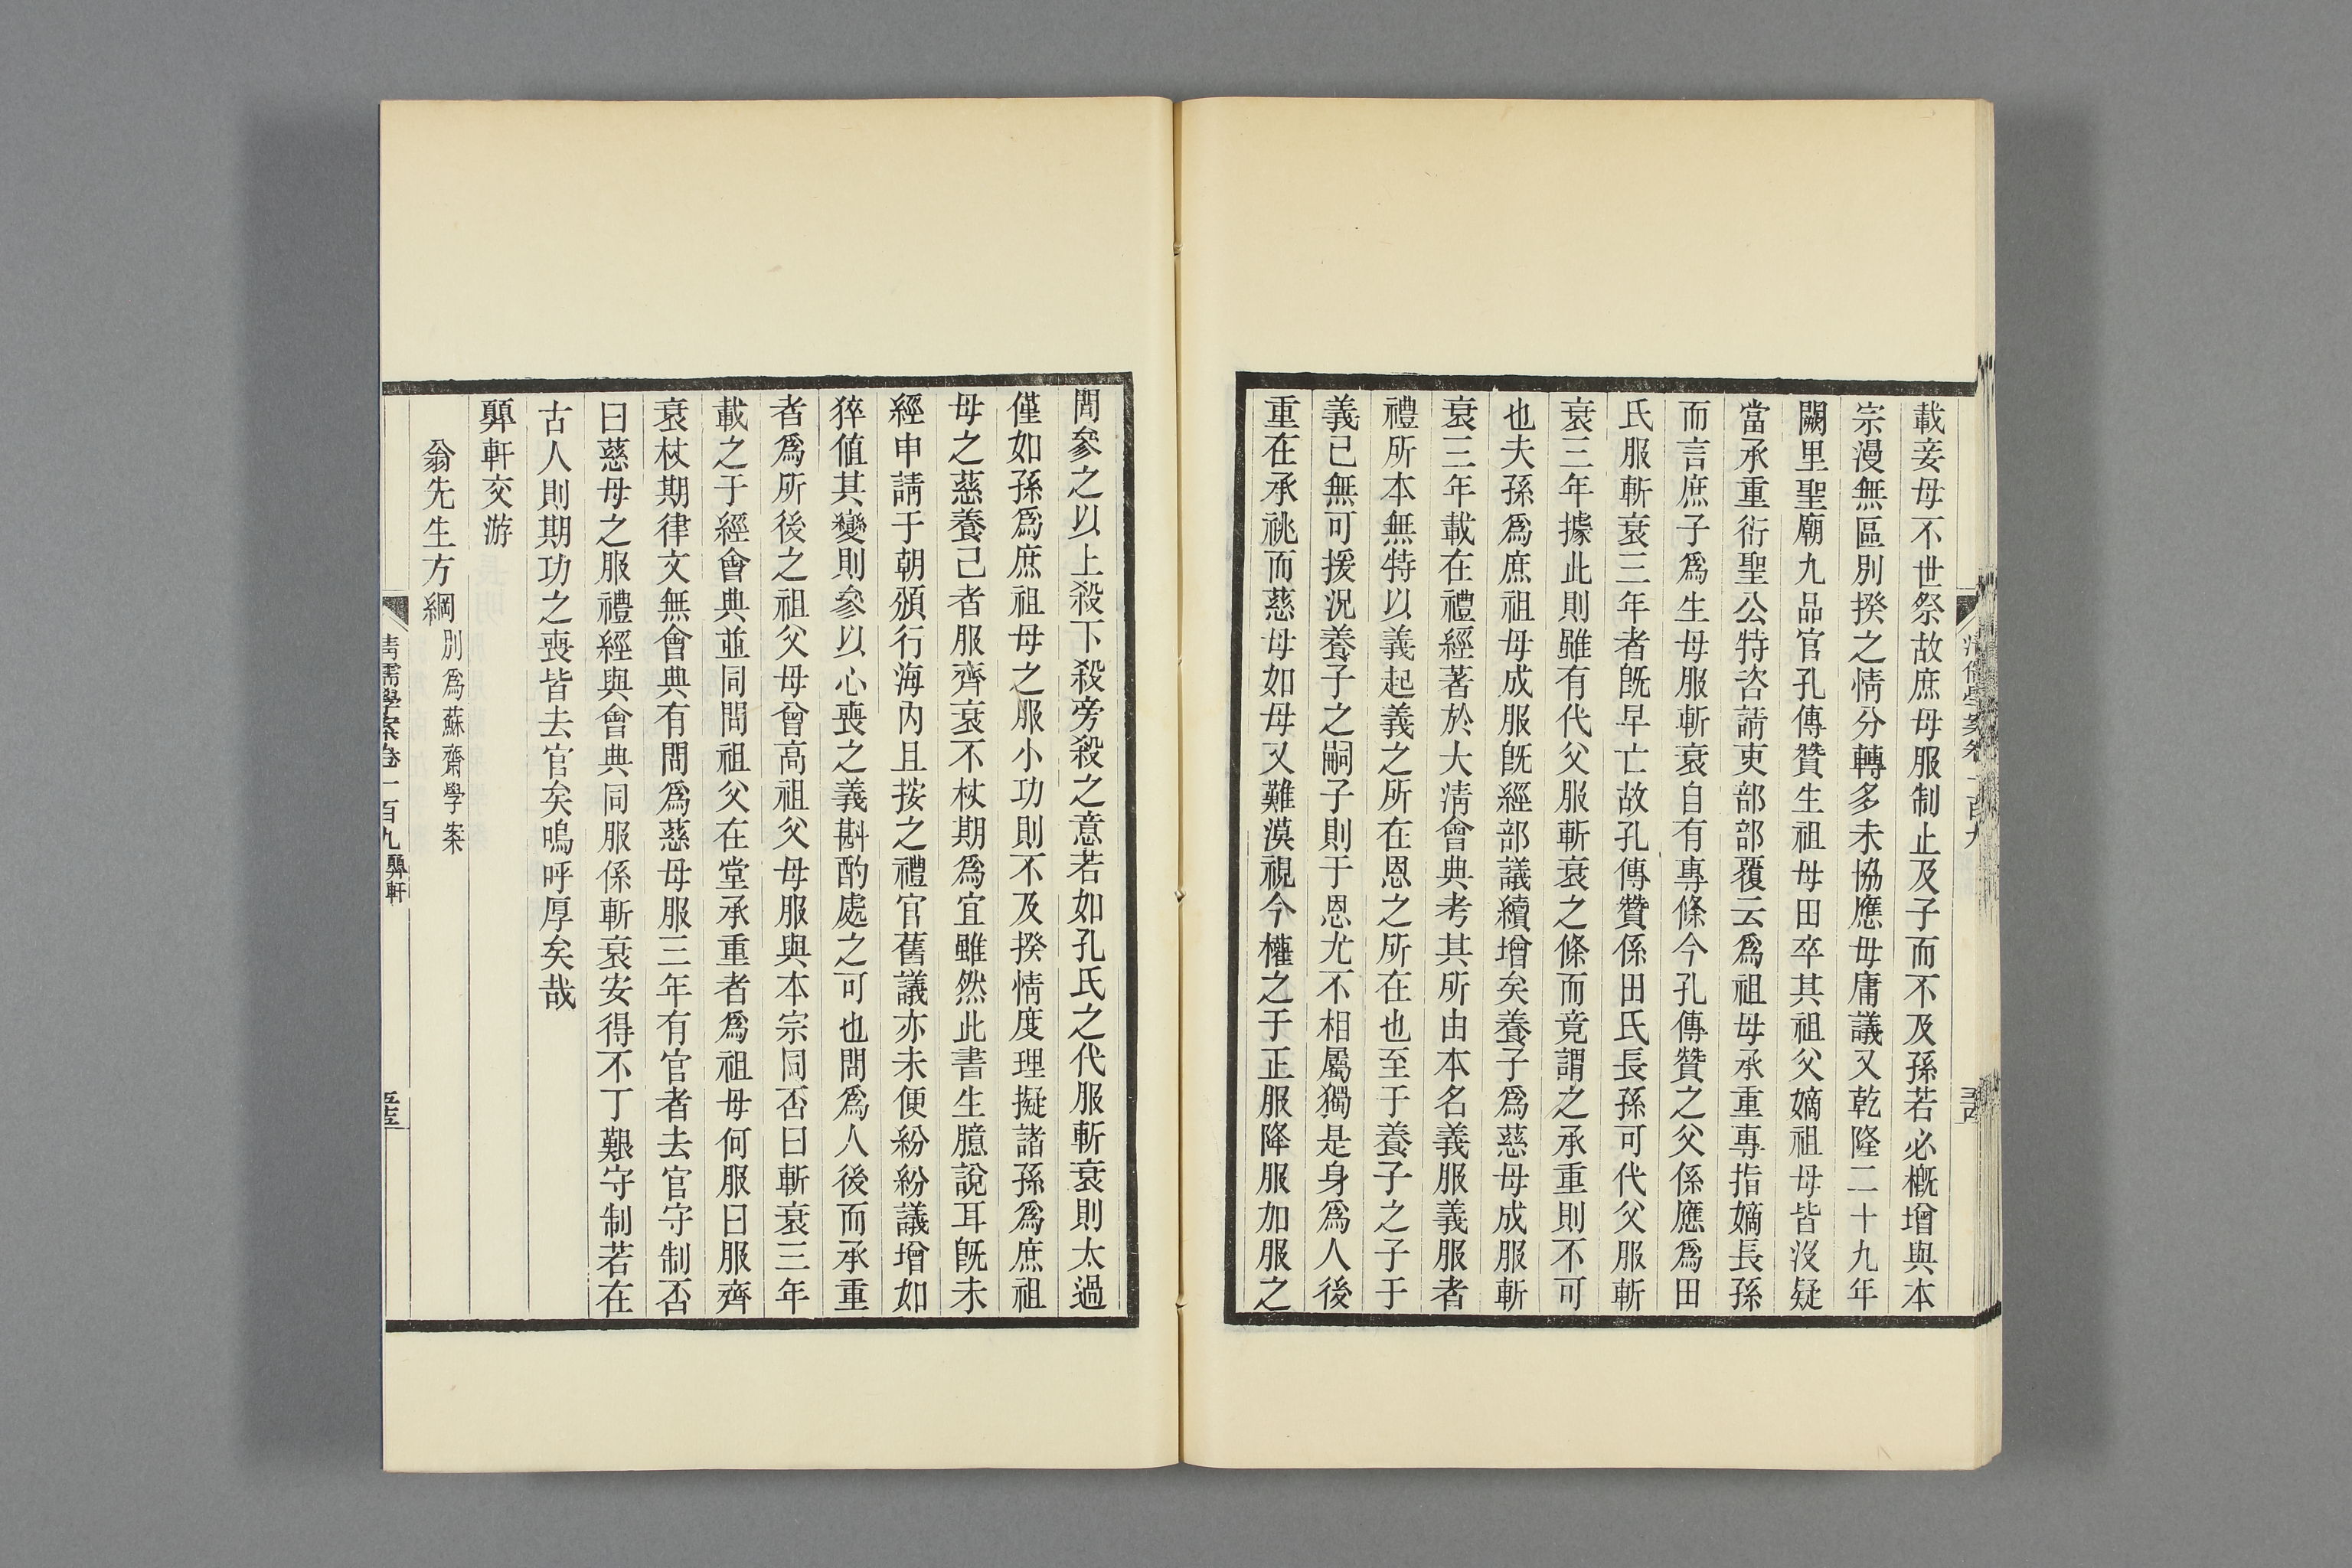 載妾母不世祭故庶母服制止及子而不及孫若必概增與本
宗漫無區別揆之情分轉多未協應毋庸議又乾隆二十九年
闕里聖廟九品官孔傳贊生祖母田卒其祖父嫡祖母皆沒疑
當承重衍聖公特咨請吏部部覆云爲祖母承重專指嫡長孫
而言庶子爲生母服斬衰自有專條今孔傳贊之父係應爲田
氏服斬衰三年者旣早亡故孔傳贊係田氏長孫可代父服斬
衰三年據此則雖有代父服斬衰之條而竟謂之承重則不可
也夫孫爲庶祖母成服旣經部議續增矣養子爲慈母成服斬
衰三年載在禮經著於大淸會典考其所由本名義服義服者
禮所本無特以義起義之所在恩之所在也至于養子之子于
義已無可援況養子之嗣子則于恩尤不相屬獨是身爲人後
重在承祧而慈母如母又難漠視今權之于正服降服加服之
淸儒學案卷一百九
五十四
閒參之以上殺下殺旁殺之意若如孔氏之代服斬衰則太過
僅如孫爲庶祖母之服小功則不及揆情度理擬諸孫爲庶祖
母之慈養己者服齊衰不杖期爲宜雖然此書生臆說耳旣未
經申請于朝頒行海內且按之禮官舊議亦未便紛紛議增如
猝值其變則參以心喪之義斟酌處之可也問爲人後而承重
者爲所後之祖父母曾高祖父母服與本宗同否曰斬衰三年
載之于經會典並同問祖父在堂承重者爲祖母何服曰服齊
衰杖期律文無會典有問爲慈母服三年有官者去官守制否
曰慈母之服禮經與會典同服係斬衰安得不丁艱守制若在
古人則期功之喪皆去官矣嗚呼厚矣哉
顨軒交游
翁先生方綱別爲蘇齋學案
淸儒學案卷一百九顨軒
五十五